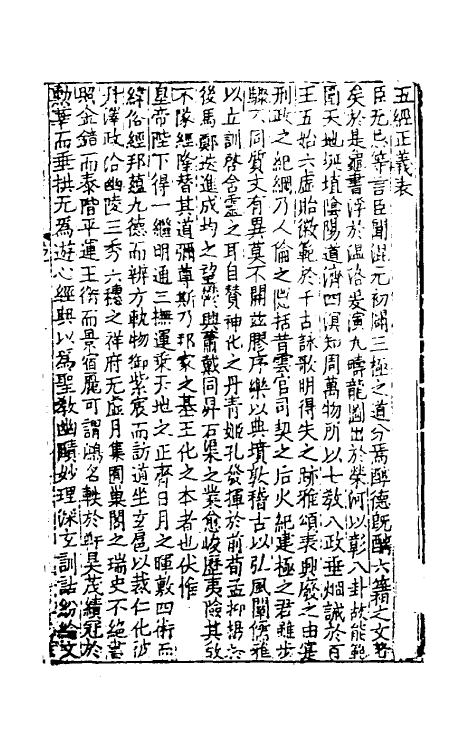 五經正義表
臣无忌等言臣聞混元初闢三極之道分焉醇德既醨六籍之文著
矣於是龜書浮於温洛爰演九疇龍圖出於榮河以彰八卦故能範
圍天地埏埴陰陽道濟四溟知周萬物所以七教八政垂烱誡於百
王五始六虛貽徽範於千古詠歌明得失之跡雅頌表興廢之由寔
刑政之紀綱乃人倫之隱括昔雲官司契之后火紀建極之君雖步
驟不同質文有異莫不開兹膠序樂以典墳敦稽古以弘風闡儒雅
以立訓啓含靈之耳目賛神化之丹青姬孔發揮於前荀孟抑揚於
後馬鄭迭進成均之望蔚興蕭戴同昇石渠之業愈峻歷夷險其教
不隊經隆替其道彌尊斯乃邦家之基王化之本者也伏惟
皇帝陛下得一繼明通三撫運乗天地之正齊日月之暉敷四術而
緯俗經邦藴九德而辨方軌物御紫宸而訪道坐玄扈以裁仁化被
丹澤政洽幽陵三秀六穗之祥府无虛月集囿巢閣之瑞史不絶書
照金鏡而泰階平運玉衡而景宿麗可謂鴻名軼於軒昊茂績冠於
勲華而垂拱无爲遊心經典以爲聖教幽賾妙理深玄訓詁紛綸文